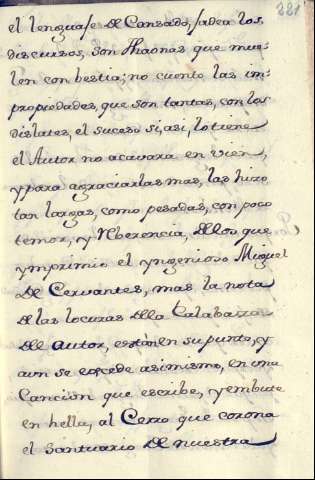 221
el lenguaje de Cansado, jadea los
discursos, son Thaonas que mue-
len con bestia; no cuento las im-
propiedades, que son tantas, con los
dislates, el suceso si, asi, lo tiene
el Autor no acavara en vien,
y para agraciarlas mas, las hizo
tan largas, como pesadas, con poco
temor, y Rberencia, dellos que
ymprimio el yngenioso Miguel
de Cervantes, mas la nota
de las locuras della Calabaza
del autor, estàn en su punto, y
aun se excede asimismo, en una
Cancion que escribe, y embute
en hella, al Cerro que corona
el Santuario de nuestra